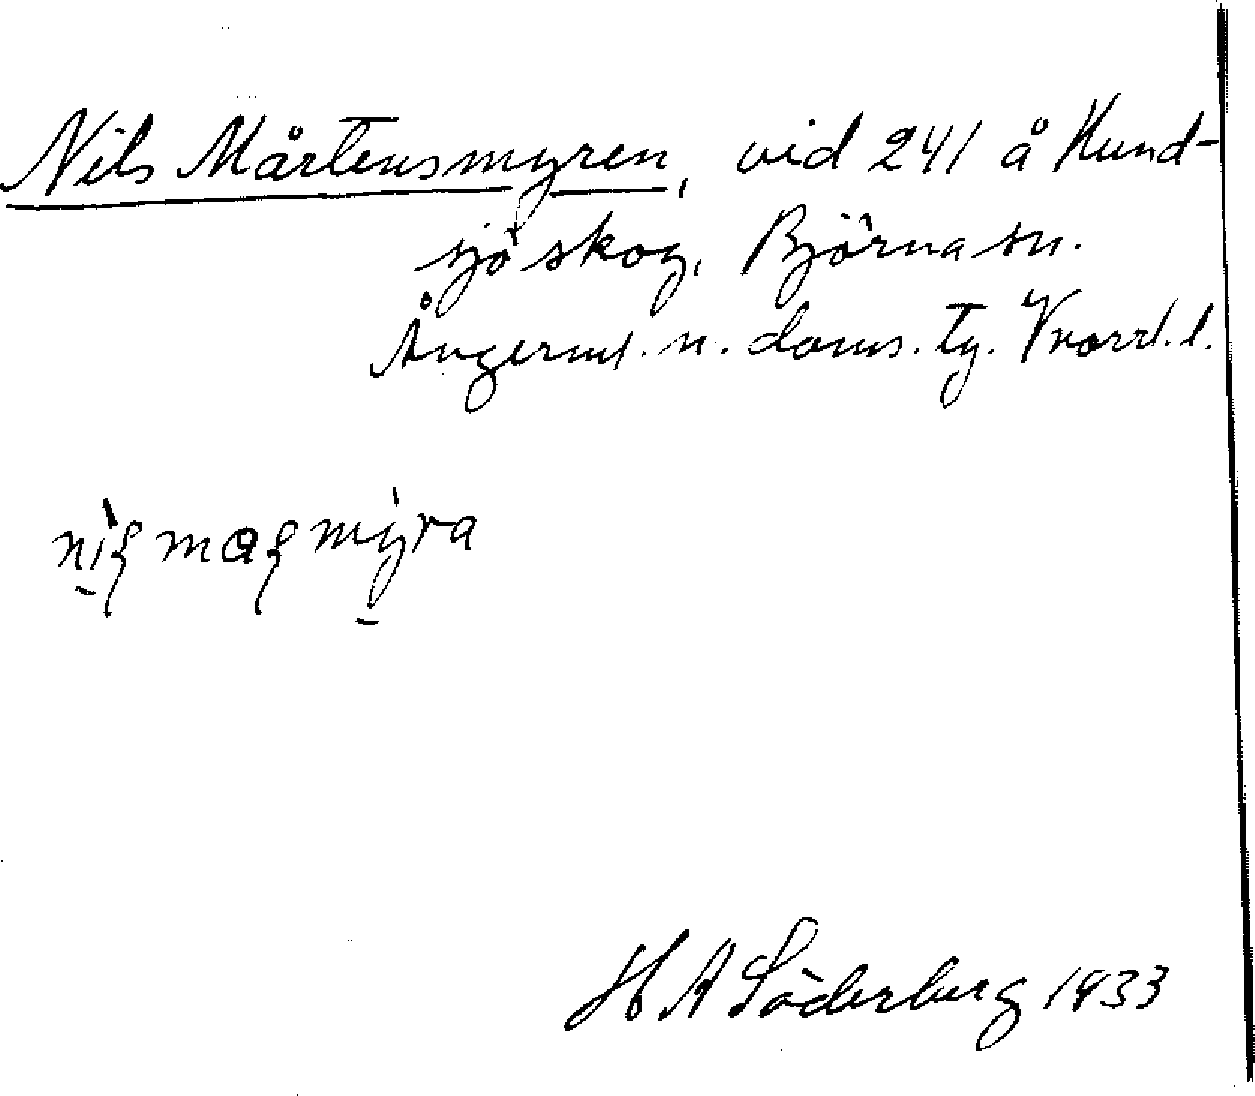 Nils Mårtensmyren, vid 241 å Hund-
sjö skog, Björna sn.
Ångerml. n. doms. tg. Vnorrl. l.
myra
H A Söderberg 1933